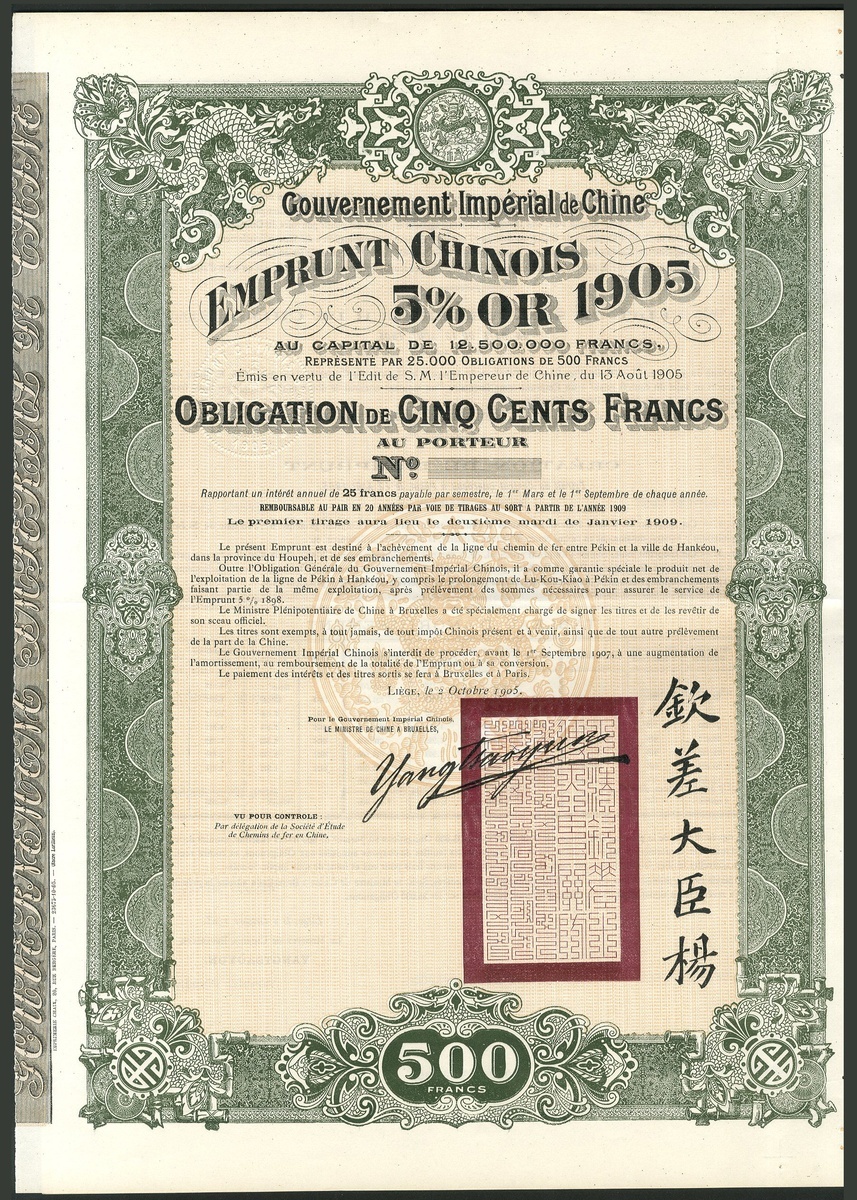 Gouvernement Impérial de Chine
EMPRUNT CHINOIS
5% OR 1905
AU CAPITAL DE 12.500.000 FRANCS.
REPRÉSENTÉ PAR 25.000 OBLIGATIONS DE 500 FRANCS
Émis en vertu de l'Edit de S. M. l'Empereur de Chine, du 13 Août 1905
OBLIGATION DE CINQ CENTS FRANCS
AU PORTEUR
No.
Rapportant un intérêt annuel de 25 francs payable par semestre, le 1er Mars et le 1er Septembre de chaque année.
REMBOURSABLE AU PAIR EN 20 ANNÉES PAR VOIE DE TIRAGES AU SORT A PARTIR DE L'ANNÉE 1909
Le premier tirage aura lieu le deuxième mardi de Janvier 1909.
Le présent Emprunt est destiné à l'achèvement de la ligne du chemin de fer entre Pékin et la ville de Hankéou,
dans la province du Houpeh, et de ses embranchements.
Outre l'Obligation Générale du Gouvernement Impérial Chinois, il a comme garantie spéciale le produit net de
l'exploitation de la ligne de Pékin à Hankéou, y compris le prolongement de Lu-Kou-Kiao à Pékin et des embranchements
faisant partie de la même exploitation, après prélèvement des sommes nécessaires pour assurer le service de
l'Emprunt 5 % 1898.
Le Ministre Plénipotentiaire de Chine à Bruxelles a été spécialement chargé de signer les titres et de les revêtir de
son sceau officiel.
Les titres sont exempts, à tout jamais, de tout impôt Chinois présent et à venir, ainsi que de tout autre prélèvement
de la part de la Chine.
Le Gouvernement Impérial Chinois s'interdit de procéder, avant le 1er Septembre 1907, à une augmentation de
l'amortissement, au remboursement de la totalité de l'Emprunt ou à sa conversion.
Le paiement des intérêts et des titres sortis se fera à Bruxelles et à Paris.
LIÈGE, le 2 Octobre 1905.
Pour le Gouvernement Impérial Chinois,
LE MINISTRE DE CHINE A BRUXELLES,
Yang Tsao yun
VU POUR CONTROLE :
Par délégation de la Société d'Étude
de Chemins de fer en Chine,
欽差大臣楊
500
FRANCS
IMPRIMERIE CHAIX, 20, RUE BERGÈRE, PARIS.